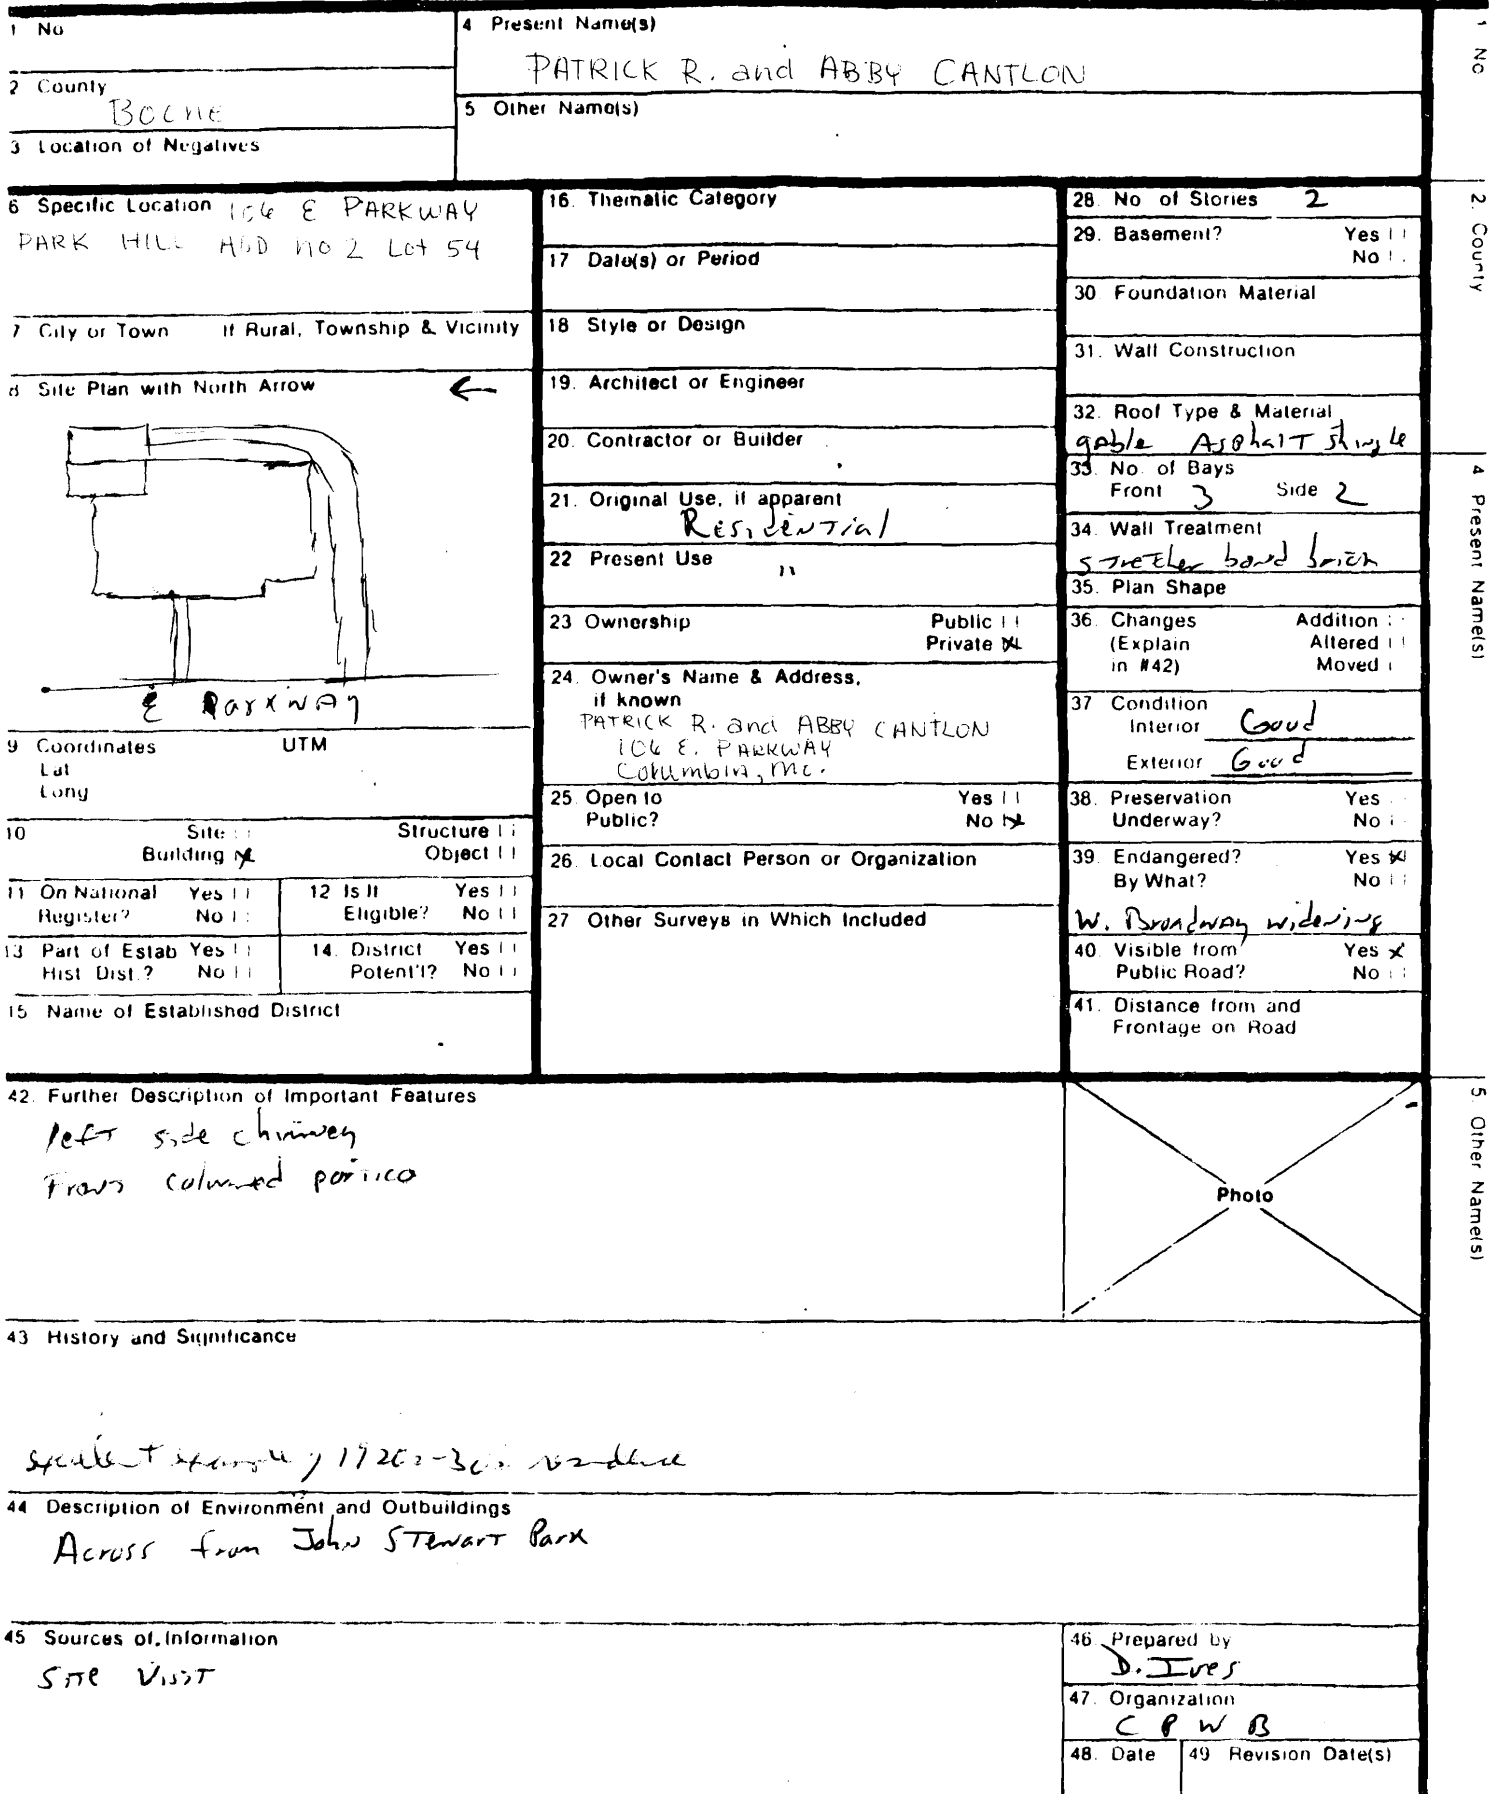 1 No
2 County
BOONE
3 Location of Negatives
4 Present Name(s)
PATRICK R. and ABBY CANTLON
5 Other Name(s)
6 Specific Location 106 E PARKWAY
PARK HILL ADD NO 2 Lot 54
7 City or Town If Rural, Township & Vicinity
8 Site Plan with North Arrow
E Parkway
9 Coordinates UTM
Lat
Long
10 Site Structure
Building Object
11 On National Register? Yes No
12 Is It Eligible? Yes No
13 Part of Estab Hist Dist.? Yes No
14. District Potent'l? Yes No
15 Name of Established District
16. Thematic Category
17 Date(s) or Period
18 Style or Design
19. Architect or Engineer
20. Contractor or Builder
21. Original Use, if apparent
Residential
22 Present Use
"
23 Ownership Public
Private X
24. Owner's Name & Address,
if known
PATRICK R. and ABBY CANTLON
106 E. PARKWAY
Columbia, Mo.
25. Open to Yes
Public? No X
26. Local Contact Person or Organization
27 Other Surveys in Which Included
28. No of Stories 2
29. Basement? Yes
No
30 Foundation Material
31. Wall Construction
32. Roof Type & Material
gable Asphalt shingle
33. No. of Bays
Front 3 Side 2
34. Wall Treatment
stretcher bond brick
35. Plan Shape
36. Changes Addition
(Explain Altered
in #42) Moved
37 Condition
Interior Good
Exterior Good
38. Preservation Yes
Underway? No
39. Endangered? Yes X
By What? No
W. Broadway widening
40. Visible from Yes X
Public Road? No
41. Distance from and
Frontage on Road
42. Further Description of Important Features
left side chimney
Front columned portico
Photo
43 History and Significance
excellent example 1920s-30s residence
44 Description of Environment and Outbuildings
Across from John Stewart Park
45 Sources of Information
Site Visit
46. Prepared by
D. Ives
47. Organization
C P W B
48. Date
49 Revision Date(s)
1 No
2. County
4 Present Name(s)
5. Other Name(s)